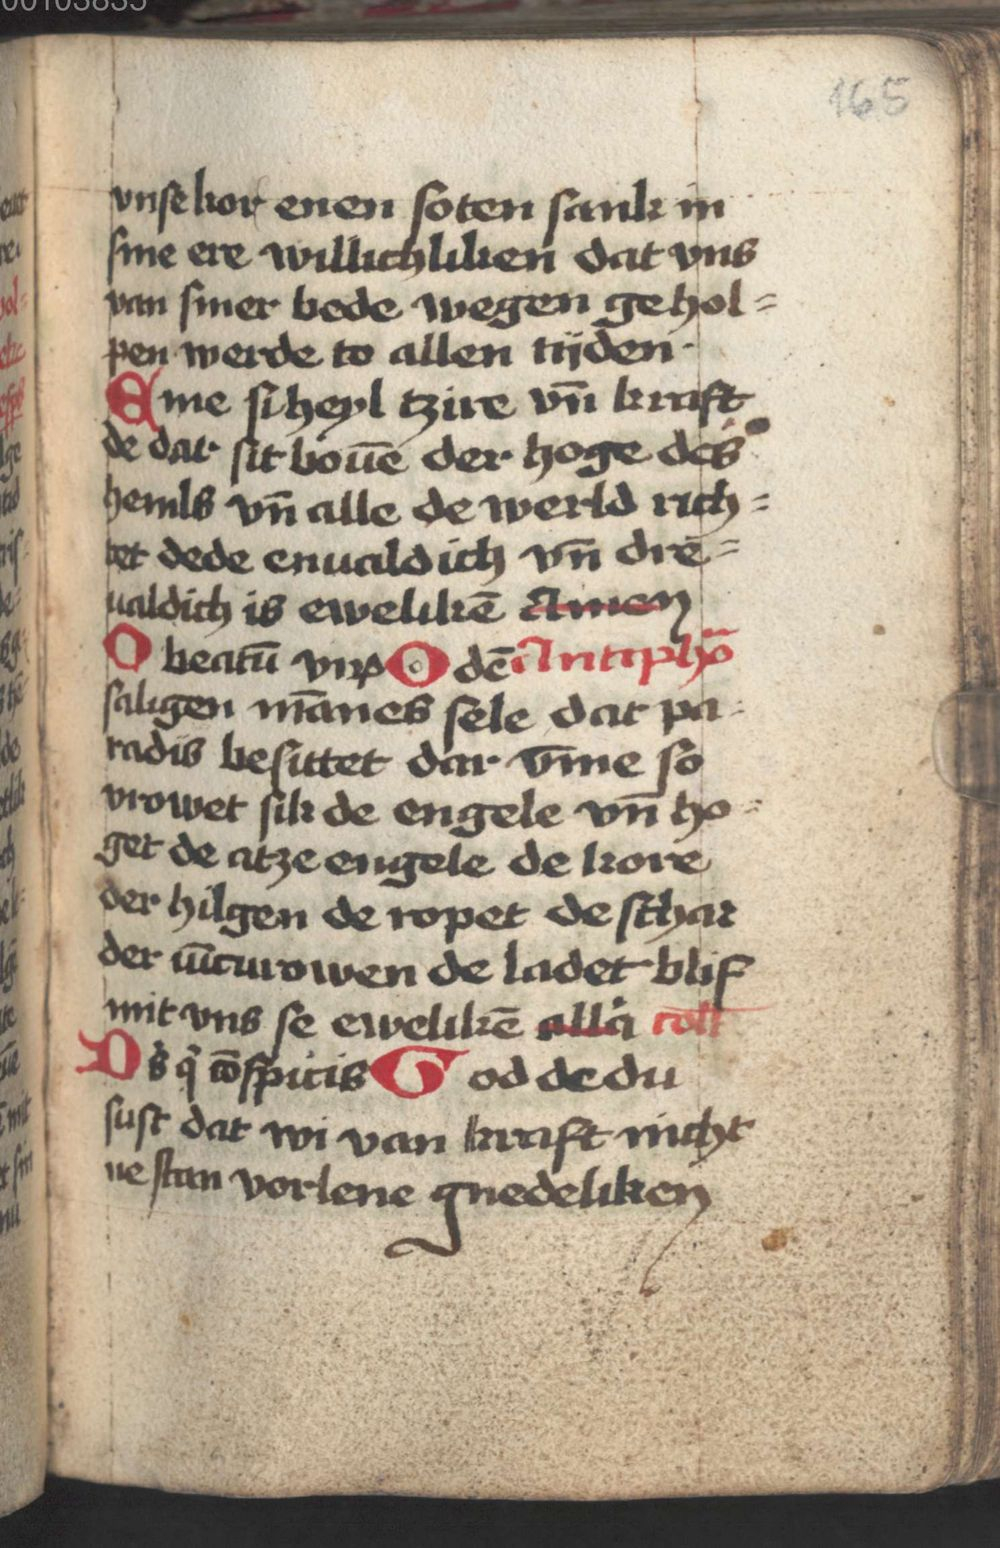 00103835
165
vnse kor enen soten sank in
sine ere willichliken dat vns
van siner bede wegen gehol=
pen werde to allen tijden·
Eme si heyl tzire vn̄ kraft
de dar sit bouē der hoge des
hemls vn̄ alle de werld rich=
tet dede enualdich vn̄ dre=
ualdich is ewelikē Amen
O beatū virū O dē Antiphō
saligen mānes sele dat pa=
radis besittet dar v̄me so
vrowet sik de engele vn̄ ho=
get de atze engele de kore
der hilgen de ropet de schar
der iūcurowen de ladet blif
mit vns se ewelikē alla coll
Ds q̄ cōspicis God de du
sust dat wi van kraft nicht
ne stan vorlene gnedeliken